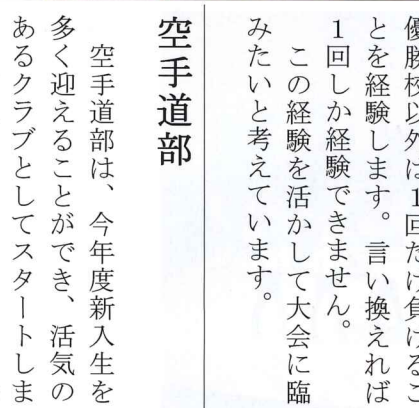 優勝校以外は1回だけ負けるこ
とを経験します。言い換えれば
1回しか経験できません。
この経験を活かして大会に臨
みたいと考えています。
空手道部
空手道部は、今年度新入生を
多く迎えることができ、活気の
あるクラブとしてスタートしま